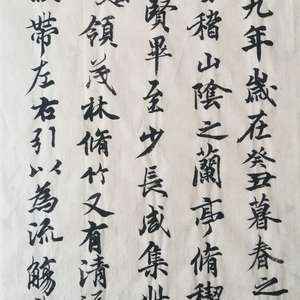 九年歲在癸丑暮春之
稽山陰之蘭亭脩禊
賢畢至少長咸集此
領茂林脩竹又有清流
帶左右引以為流觴